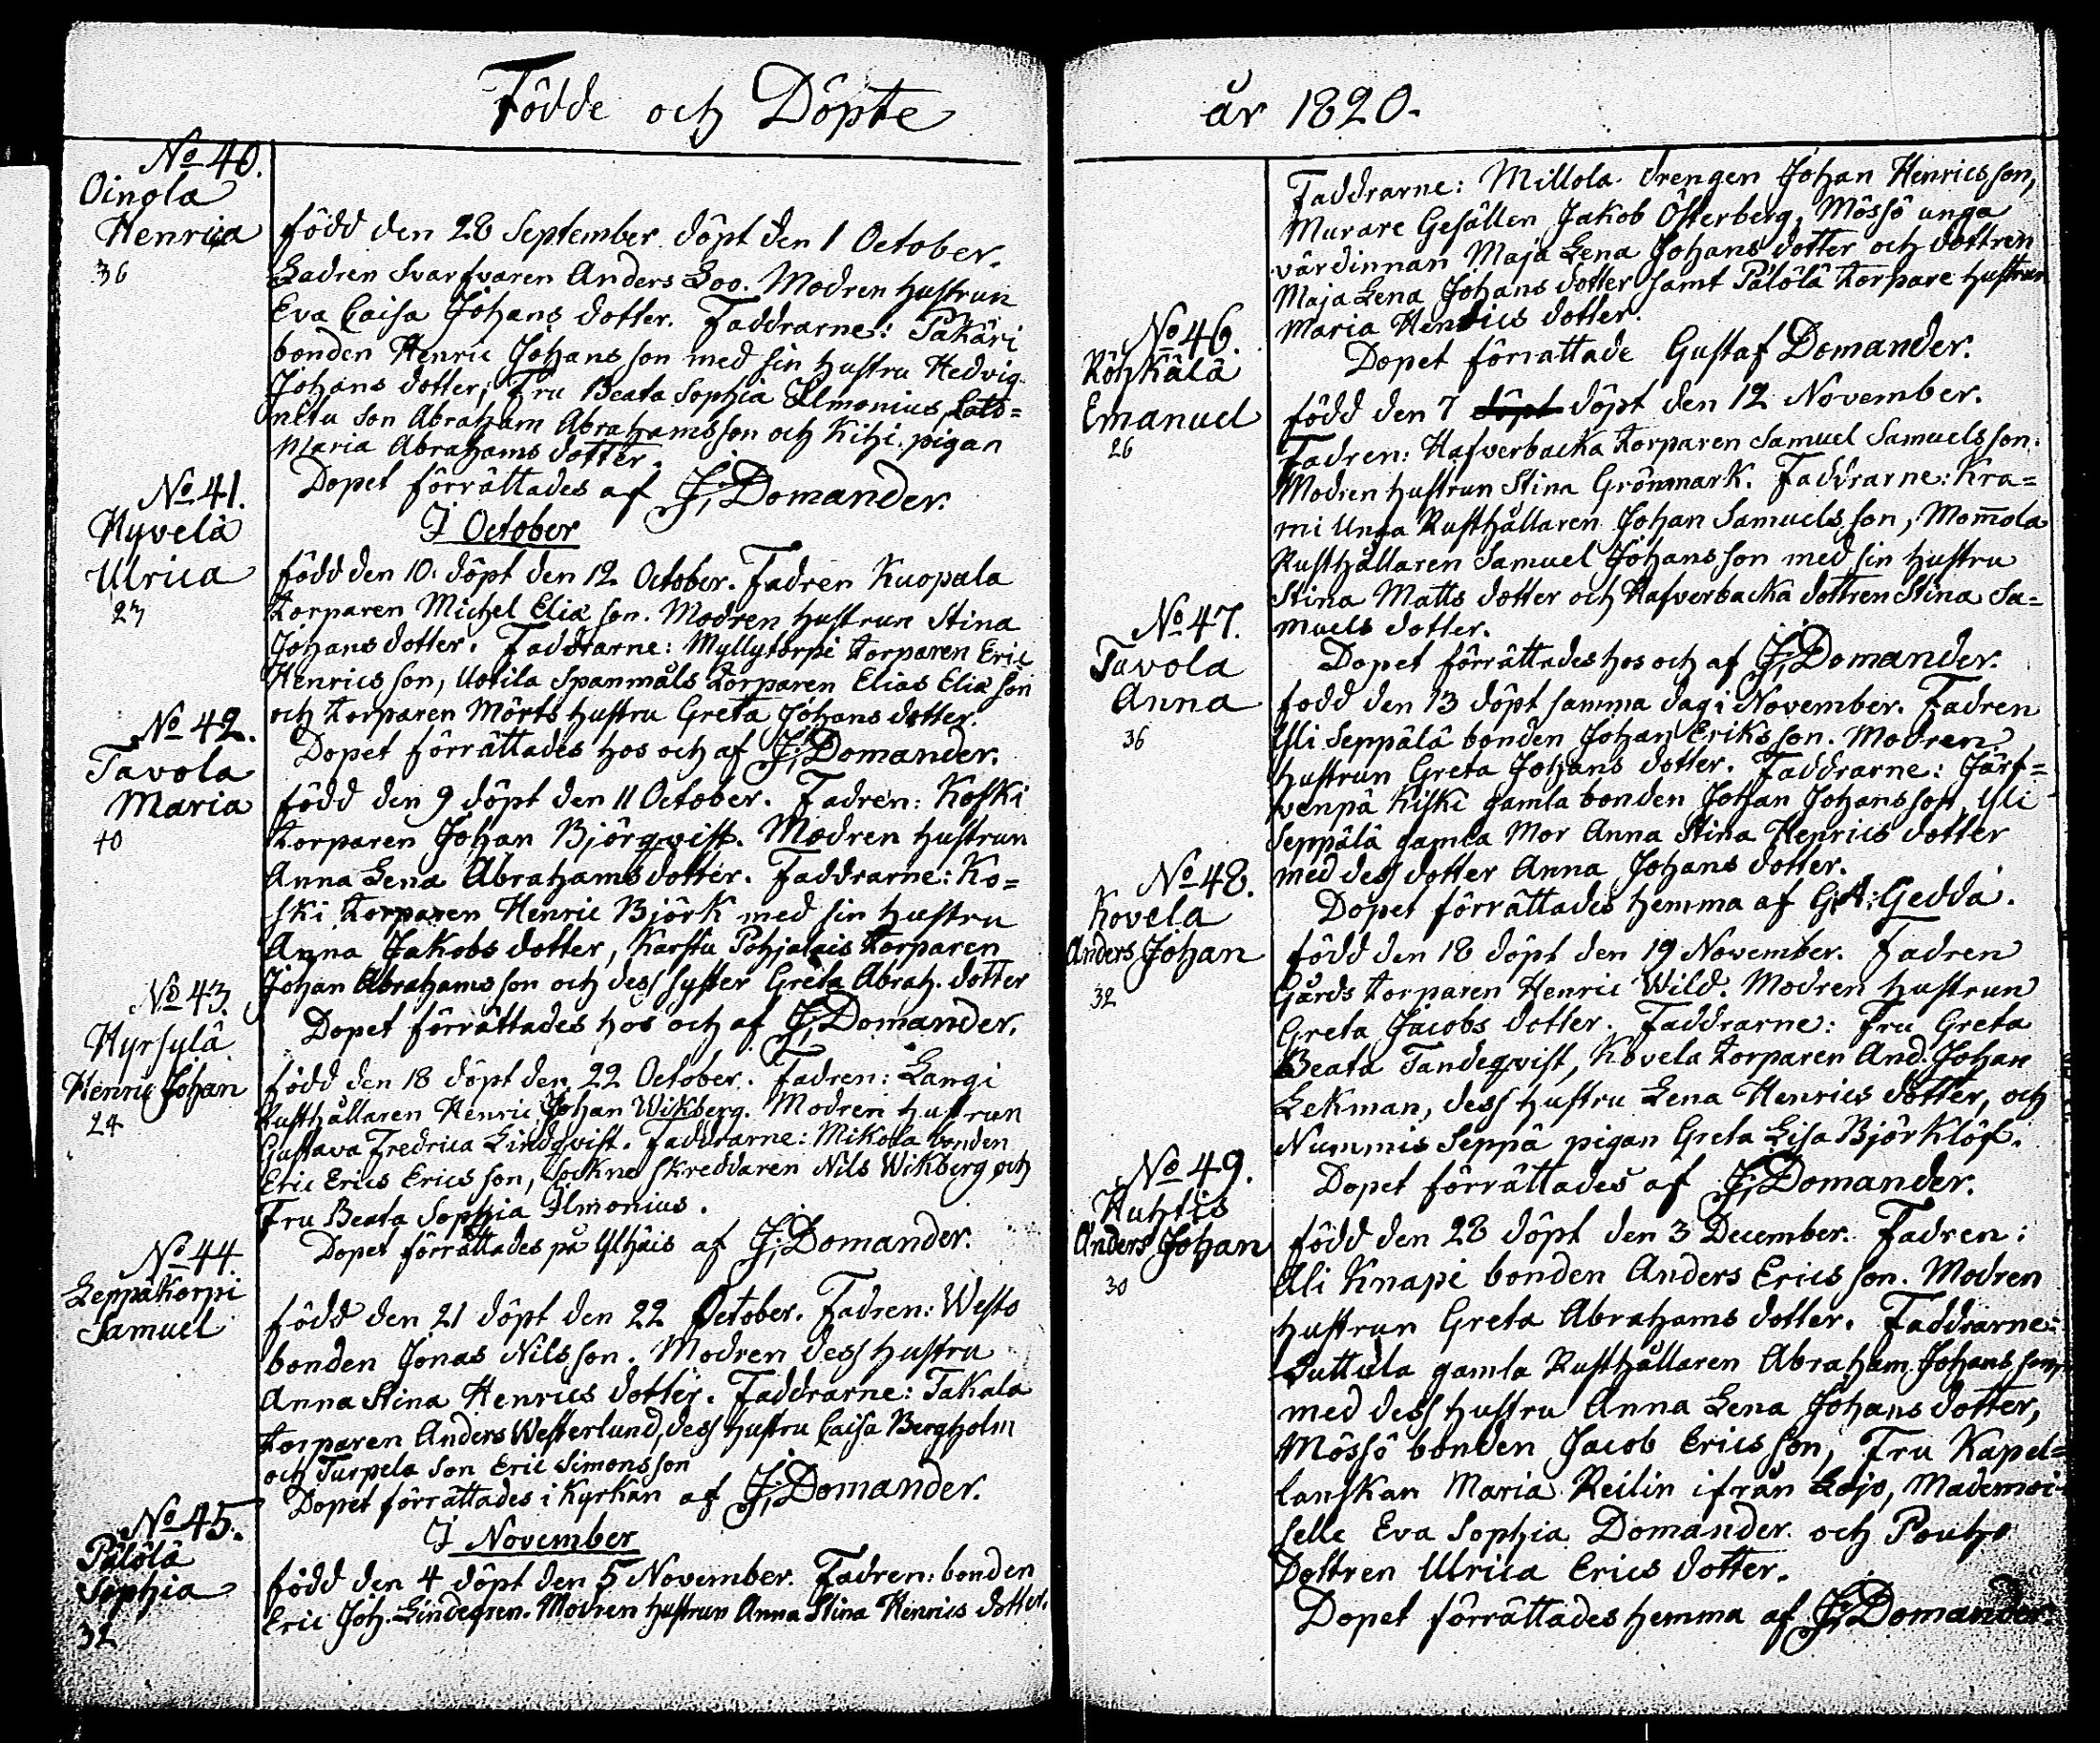 Födde och Döpte
No 40.
Oinola
Henrica
36
född den 28 September döpt den 1 October.
Fadren Svarfvaren Anders Loo. Modren hustrun
Eva Caisa Johans dotter. Faddrarne: Päkäri
bonden Henric Johans son med sin hustru Hedvig
Johans dotter; Fru Beata Sophia Ilmonius,
son Abraham Abrahamsson och Kihi. pigan
Maria Abrahams dotter.
Dopet förrättades af J: Domander.
I October
No 41.
Hyvelä
Ulrica
27
född den 10. döpt den 12 October. Fadren Kuopala
torparen Michel Eliæ son. Modren hustrun Stina
Johans dotter. Faddrarne: Myllytorpi torparen Eric
Henrics son, Uotila Spanmåls torparen Elias Eliæ son
och torparen Mörts hustru Greta Johans dotter.
Dopet förrättades hos och af J: Domander.
No 42.
Tavola
Maria
40
född den 9 döpt den 11 October. Fadren: Koski
torparen Johan Björqvist. Modren hustrun
Anna Lena Abrahams dotter. Faddrarne: Ko=
ski torparen Henric Björk med sin hustru
Anna Jakobs dotter, Karstu Pohjalais torparen
Johan Abrahams son och dess syster Greta Abrah. dotter
Dopet förrättades hos och af J: Domander.
No 43.
Hyrsylä
Henric Johan
24
född den 18 döpt den 22 October. Fadren: Langi
Rusthållaren Henric Johan Wikberg. Modren hustrun
Gustava Fredrica Lindqvist. Faddrarne: Mikola bonden
Eric Erics Erics son, Sockne Skreddaren Nils Wikberg och
Fru Beata Sophia Ilmonius.
Dopet förrättades på Ylhäis af J: Domander.
No 44.
Leppäkorpi
Samuel
född den 21 döpt den 22 October. Fadren: Westo
bonden Jonas Nils son. Modren dess hustru
Anna Stina Henrics dotter. Faddrarne: Takala
torparen Anders Westerlund, dess hustru Caisa Bergholm
och Turpela son Eric Simons son
Dopet förrättades i Kyrkan af J: Domander.
I November
No 45.
Pälölä
Sophia
32
född den 4 döpt den 5 November. Fadren: bonden
Eric Joh. Lindegren. Modren hustrun Anna Stina Henrics dotter.
år 1820.
Faddrarne: Millola drengen Johan Henrics son,
Murare Gesällen Jakob Österberg, Mössö unga
värdinnan Maja Lena Johans dotter och dottren
Maja Lena Johans dotter samt Pälölä torpare hustrun
Maria Henrics dotter.
Dopet förrattade Gustaf Domander.
No 46.
Röhkälä
Emanuel
26
född den 7 döpt döpt den 12 November.
Fadren: Hafverbacka torparen Samuel Samuels son.
Modren hustrun Stina Grönmark. Faddrarne: Kra=
mi Unga Rusthållaren Johan Samuels son, Mom̅ola
Rusthållaren Samuel Johans son med sin hustru
Stina Matts dotter och Hafverbacka dottren Stina Sa=
muels dotter.
Dopet förrättades hos och af J: Domander.
No 47.
Tavola
Anna
36
född den 13 döpt samma dag i November. Fadren
Yli Seppälä bonden Johan Eriks son. Modren
hustrun Greta Johans dotter. Faddrarne: Järf=
venpä Kiski gamla bonden Johan Johans son, Yli
Seppälä gamla Mor Anna Stina Henrics dotter
med dess dotter Anna Johans dotter.
Dopet förrättades hemma af G: A: Gedda.
No 48.
Kovela
Anders Johan
32
född den 18 döpt den 19 November. Fadren
Gårds torparen Henric Wild. Modren hustrun
Greta Jacobs dotter. Faddrarne: Fru Greta
Beata Tandeqvist, Kovela torparen And. Johan
Lekman, dess hustru Lena Henrics dotter, och
Nummis Seppä pigan Greta Lisa Björklöf.
Dopet förrättades af J: Domander.
No 49.
Huhtis
Anders Johan
30
född den 28 döpt den 3 December. Fadren:
Ali Knapi bonden Anders Erics son. Modren
hustrun Greta Abrahams dotter. Faddrarne:
Outtula gamla Rusthållaren Abraham Johans son,
med dess hustru Anna Lena Johans dotter,
Mössö bonden Jacob Erics son, Fru Kapel=
lanskan Maria Reilin ifrån Lojo, Mademoi-
selle Eva Sophia Domander och Pouho
Dottren Ulrica Erics dotter.
Dopet förrättades hemma af J: Domander.